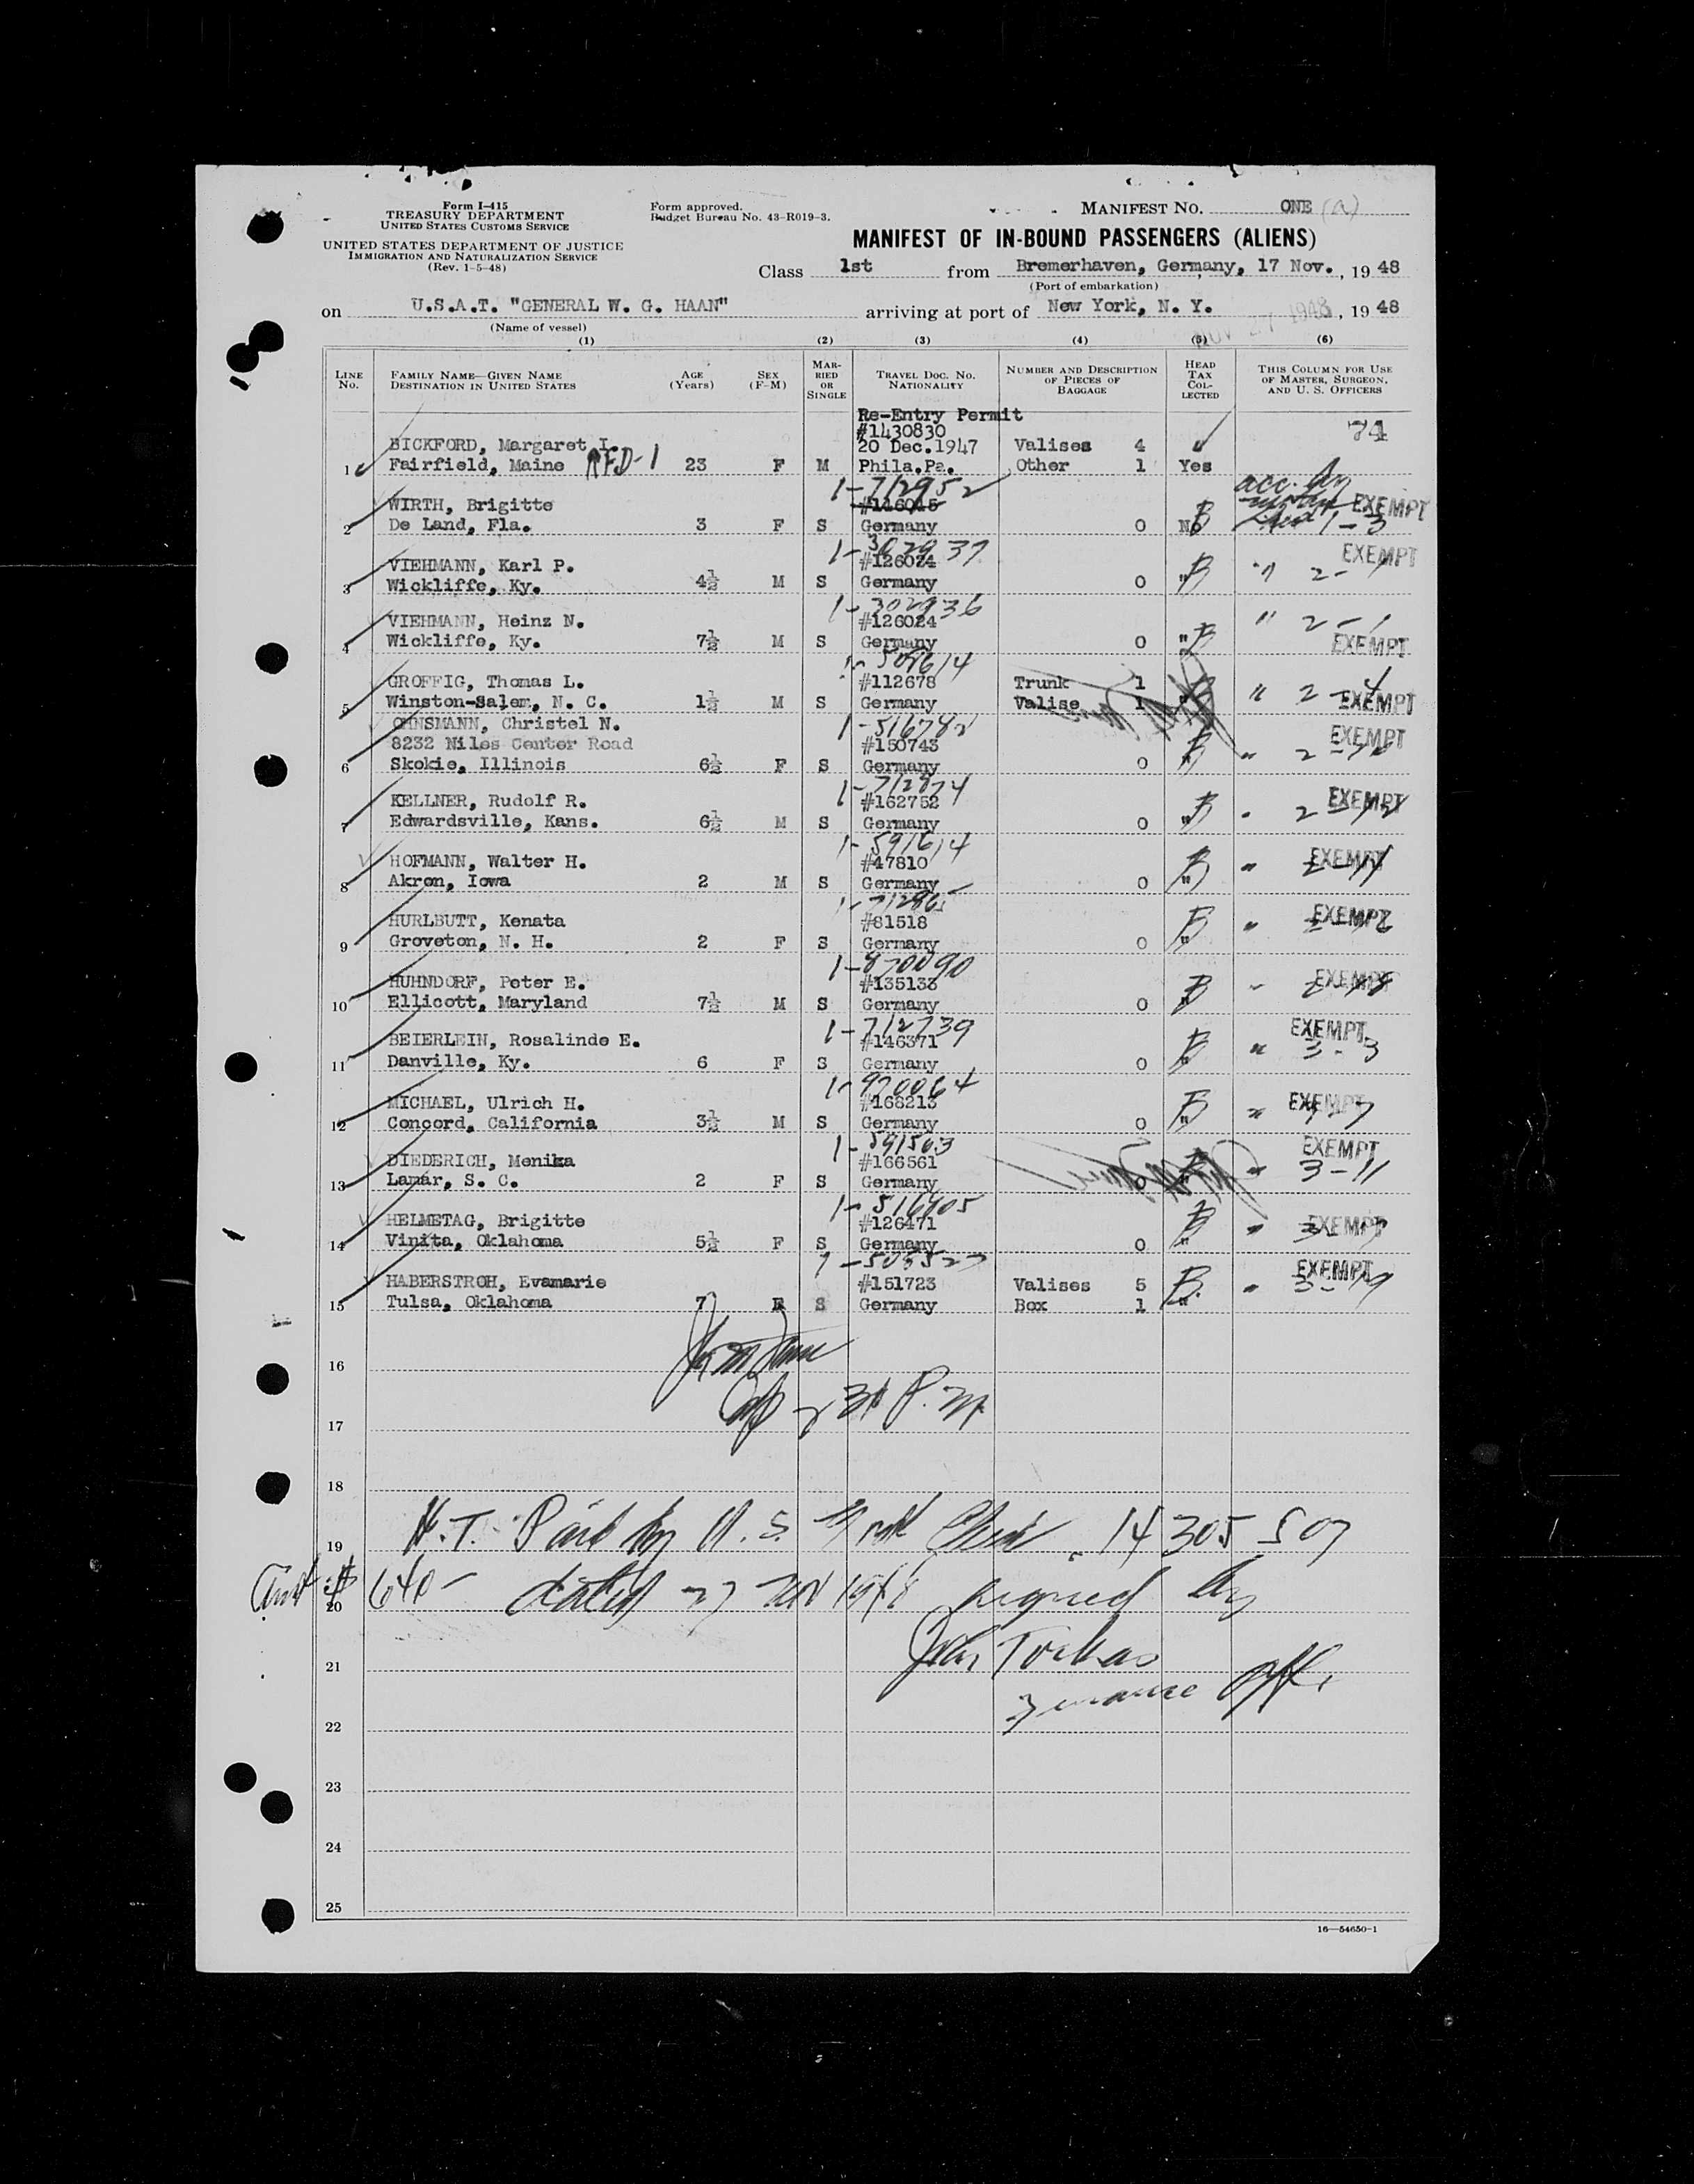 Form I-415
TREASURY DEPARTMENT
UNITED STATES CUSTOMS SERVICE
UNITED STATES DEPARTMENT OF JUSTICE
IMMIGRATION AND NATURALIZATION SERVICE
(Rev. 1-5-48)
Form approved.
Budget Bureau No. 43-R019-3.
MANIFEST NO. ONE (a)
MANIFEST OF IN-BOUND PASSENGERS (ALIENS)
Class 1st from Bremerhaven, Germany, 17 Nov., 19 48
(Port of embarkation)
on U.S.A.T. "GENERAL W. G. HAAN" arriving at port of New York, N. Y. , 19 48
(Name of vessel)
NOV 27 1948
(1) (2) (3) (4) (5) (6)
LINE No. FAMILY NAME—GIVEN NAME DESTINATION IN UNITED STATES AGE (Years) SEX (F-M) MARRIED OR SINGLE TRAVEL DOC. NO. NATIONALITY NUMBER AND DESCRIPTION OF PIECES OF BAGGAGE HEAD TAX COLLECTED THIS COLUMN FOR USE OF MASTER, SURGEON, AND U. S. OFFICERS
Re-Entry Permit
#1430830 74
BICKFORD, Margaret I. 20 Dec.1947 Valises 4
1 Fairfield, Maine RFD-1 23 F M Phila.Pa. Other 1 Yes
1-712952
WIRTH, Brigitte #146045 EXEMPT
2 De Land, Fla. 3 F S Germany 0 No 1-3
1-302937
VIEHMANN, Karl P. #126024 EXEMPT
3 Wickliffe, Ky. 4½ M S Germany 0 " B " 2-
1-302936
VIEHMANN, Heinz N. #126024 " 2-1
4 Wickliffe, Ky. 7½ M S Germany 0 " B EXEMPT
1-508614
GROFFIG, Thomas L. #112678 Trunk 1 " 2-4
5 Winston-Salem, N. C. 1½ M S Germany Valise 1 " EXEMPT
OHNSMANN, Christel N. 1-516782
8232 Niles Center Road #150743 EXEMPT
6 Skokie, Illinois 6½ F S Germany 0 " B "
1-712874
KELLNER, Rudolf R. #162752 EXEMPT
7 Edwardsville, Kans. 6½ M S Germany 0 " B "
1-591614
HOFMANN, Walter H. #47810 EXEMPT
8 Akron, Iowa 2 M S Germany 0 " B "
HURLBUTT, Kenata #81518 EXEMPT
9 Groveton, N. H. 2 F S Germany 0 " B "
1-870090
HUHNDORF, Peter E. #135133 EXEMPT
10 Ellicott, Maryland 7½ M S Germany 0 " B
1-712739
BEIERLEIN, Rosalinde E. #146371 EXEMPT
11 Danville, Ky. 6 F S Germany 0 " B " 3-3
1-970064
MICHAEL, Ulrich H. #168213 EXEMPT
12 Concord, California 3½ M S Germany 0 " B "
1-591503
DIEDERICH, Monika #166561 EXEMPT
13 Lamar, S. C. 2 F S Germany 0 " " 3-11
1-516905
HELMETAG, Brigitte #126471 EXEMPT
14 Vinita, Oklahoma 5½ F S Germany 0 " B "
1-505527
HABERSTROH, Evamarie #151723 Valises 5 EXEMPT
15 Tulsa, Oklahoma 7 F S Germany Box 1 " B "
16
17 P.M.
18
19 H.T. Paid by U.S. 14305507
20 Amt $ 640- dated 27 Nov 1948 signed by
21 John
22 Finance Offr
23
24
25
16—54650-1